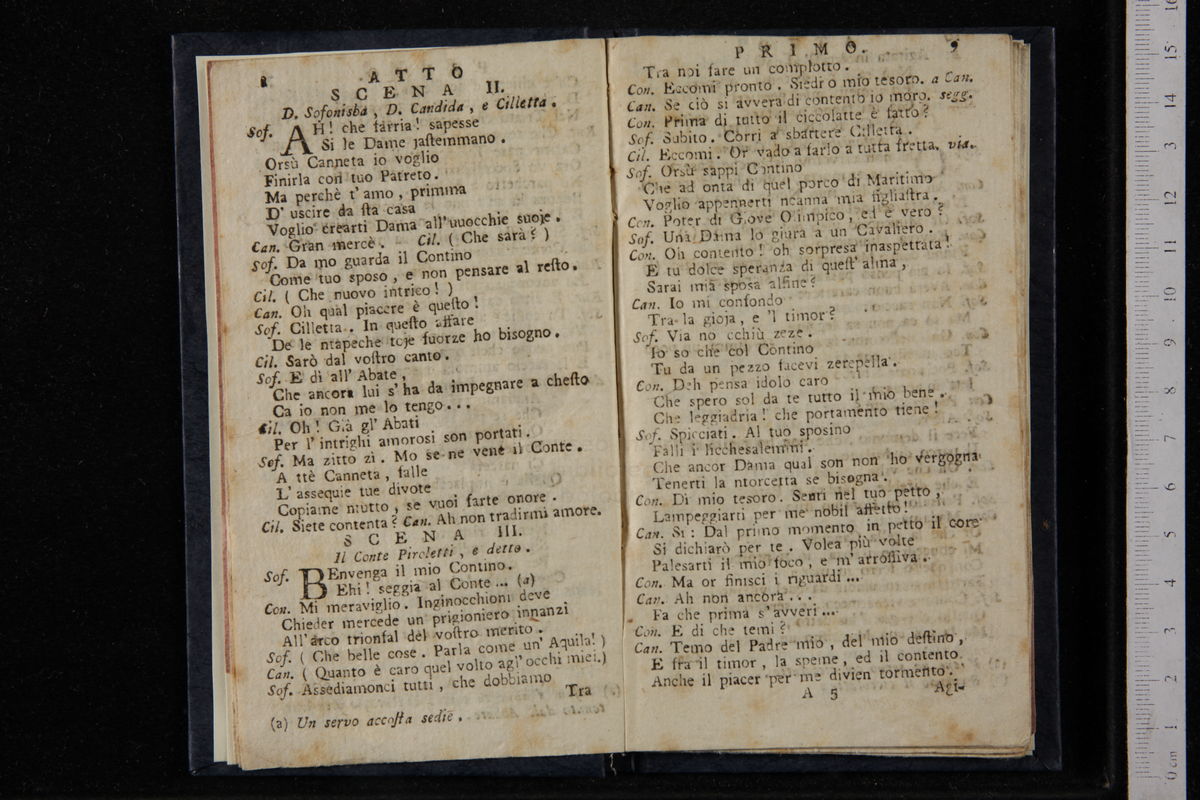 8
ATTO
SCENA II.
D. Sofonisba, D. Candida, e Cilletta.
Sof. AH! che sarria! sapesse
Si le Dame jastemmano.
Orsù Canneta io voglio
Finirla con tuo Patreto.
Ma perchè t'amo, primma
D'uscire da sta casa
Voglio crearti Dama all'uuocchie suoje.
Can. Gran mercè. Cil. (Che sarà?)
Sof. Da mo guarda il Contino
Come tuo sposo, e non pensare al resto.
Cil. (Che nuovo intrico!)
Can. Oh qual piacere è questo!
Sof. Cilletta. In questo affare
De le ntapeche toje fuorze ho bisogno.
Cil. Sarò dal vostro canto.
Sof. E di all'Abate,
Che ancora lui s'ha da impegnare a chesto
Ca io non me lo tengo...
Cil. Oh! Già gl'Abati
Per l'intrighi amorosi son portati.
Sof. Ma zitto zì. Mo se ne vene il Conte.
A ttè Canneta, falle
L'assequie tue divote
Copiame ntutto, se vuoi farte onore.
Cil. Siete contenta? Can. Ah non tradirmi amore.
SCENA III.
Il Conte Piroletti, e detto.
Sof. BEnvenga il mio Contino.
Ehi! seggia al Conte... (a)
Con. Mi meraviglio. Inginocchioni deve
Chieder mercede un prigioniero innanzi
All'arco trionfal del vostro merito.
Sof. (Che belle cose. Parla come un'Aquila!)
Can. (Quanto è caro quel volto agl'occhi miei.)
Sof. Assediamonci tutti, che dobbiamo
Tra
(a) Un servo accosta sedie.
PRIMO. 9
Tra noi fare un complotto.
Con. Eccomi pronto. Siedi o mio tesoro. a Can.
Can. Se ciò si avvera di contento io moro. segg.
Con. Prima di tutto il ciccolatte è fatto?
Sof. Subito. Corri a sbattere Cilletta.
Cil. Eccomi. Or vado a farlo a tutta fretta. via.
Sof. Orsù sappi Contino
Che ad onta di quel porco di Maritimo
Voglio appennerti ncanna mia figliastra.
Con. Poter di Giove Olimpico, ed è vero?
Sof. Una Dama lo giura a un Cavaliero.
Con. Oh contento! oh sorpresa inaspettata!
E tu dolce speranza di quest'alma,
Sarai mia sposa alfine?
Can. Io mi confondo
Tra la gioja, e 'l timor?
Sof. Via no cchiù zeze.
Io so che col Contino
Tu da un pezzo facevi zerepella.
Con. Deh pensa idolo caro
Che spero sol da te tutto il mio bene.
Che leggiadria! che portamento tiene!
Sof. Spicciati. Al tuo sposino
Falli i licchesalemmi.
Che ancor Dama qual son non ho vergogna
Tenerti la ntorcetta se bisogna.
Con. Di mio tesoro. Senti nel tuo petto,
Lampeggiarti per me nobil affetto!
Can. Sì: Dal primo momento in petto il core
Si dichiarò per te. Volea più volte
Palesarti il mio foco, e m'arrossiva.
Con. Ma or finisci i riguardi...
Can. Ah non ancora...
Fa che prima s'avveri...
Con. E di che temi?
Can. Temo del Padre mio, del mio destino,
E fra il timor, la speme, ed il contento
Anche il piacer per me divien tormento.
A 5
Agi-